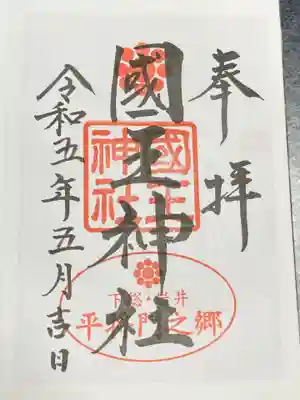 奉拝
國王神社
國王神社
下総・岩井
平将門之郷
令和五年五月吉日